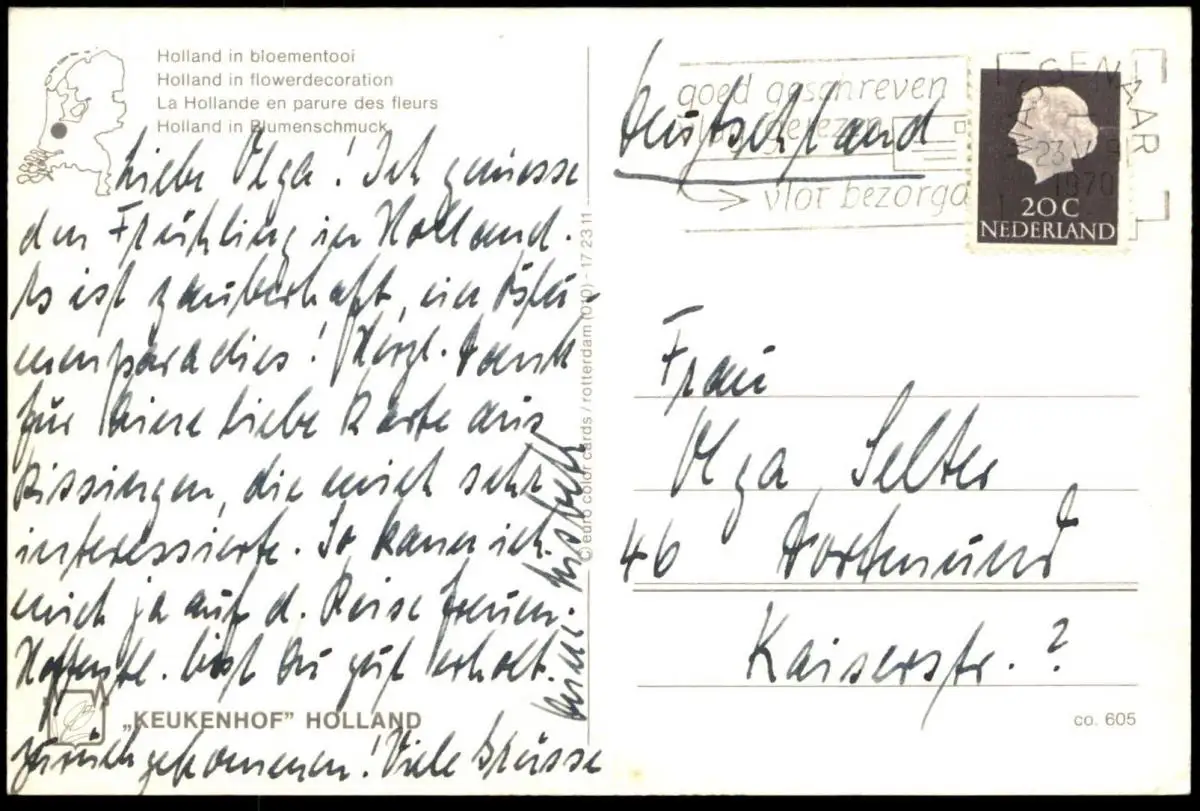 Holland in bloementooi
Holland in flowerdecoration
La Hollande en parure des fleurs
Holland in Blumenschmuck
Liebe Olga! Ich geniesse
den Frühling in Holland.
Es ist zauberhaft, ein Blu-
menparadies! Herzl. Dank
für Deine liebe Karte aus
Kissingen, die mich sehr
interessierte. So kann ich
mich ja auf d. Reise freuen.
Hoffentl. bist Du gut erholt
"KEUKENHOF" HOLLAND
zurückgekommen! Viele Grüsse
Deine Lisbeth
© euro color cards / rotterdam (010) - 17 23 11
Deutschland
goed geschreven
vlot bezorgd
WASSENAAR
1970
20 C
NEDERLAND
Frau
Olga Selter
46 Dortmund
Kaiserstr. ?
co. 605